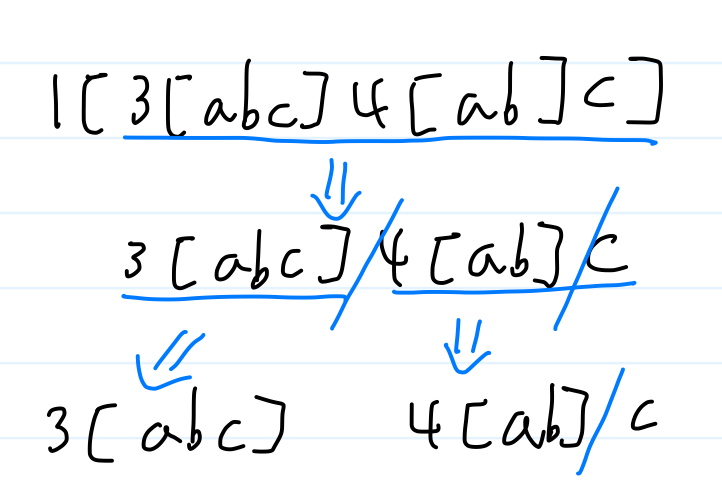 1[3[abc]4[ab]c]
3[abc]/4[ab]/c
3[abc] 4[ab]/c